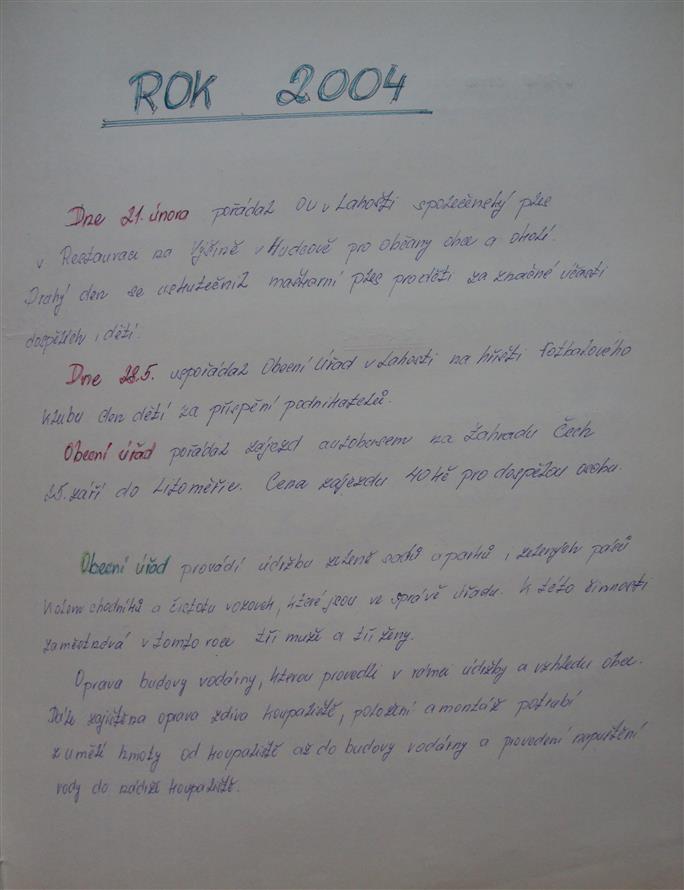 ROK 2004
Dne 21. února pořádal OU v Lahošti společenský ples
v Restauraci na Výšině v Hudcově pro občany obce a okolí.
Druhý den se uskutečnil maškarní ples pro děti za značné účasti
dospělých i dětí.
Dne 28.5. uspořádal Obecní Úřad v Lahošti na hřišti fotbalového
klubu den dětí za přispění podnikatelů.
Obecní úřad pořádal zájezd autobusem na Zahradu Čech
25. září do Litoměřic. Cena zájezdu 40 Kč pro dospělou osobu.
Obecní úřad provádí údržbu zeleně sadů a parků, zelených pásů
kolem chodníků a čistotu vozovek, které jsou ve správě úřadu. K této činnosti
zaměstnává v tomto roce tři muže a tři ženy.
Oprava budovy vodárny, kterou provedli v rámci údržby a vzhledu obce.
Dále zajištěna oprava zdiva koupaliště, položení a montáž potrubí
z umělé hmoty od koupaliště až do budovy vodárny a provedení napuštění
vody do nádrže koupaliště.